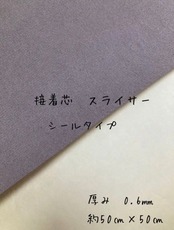 接着芯 スライサー
シールタイプ
厚み 0.6mm
約50cm×50cm